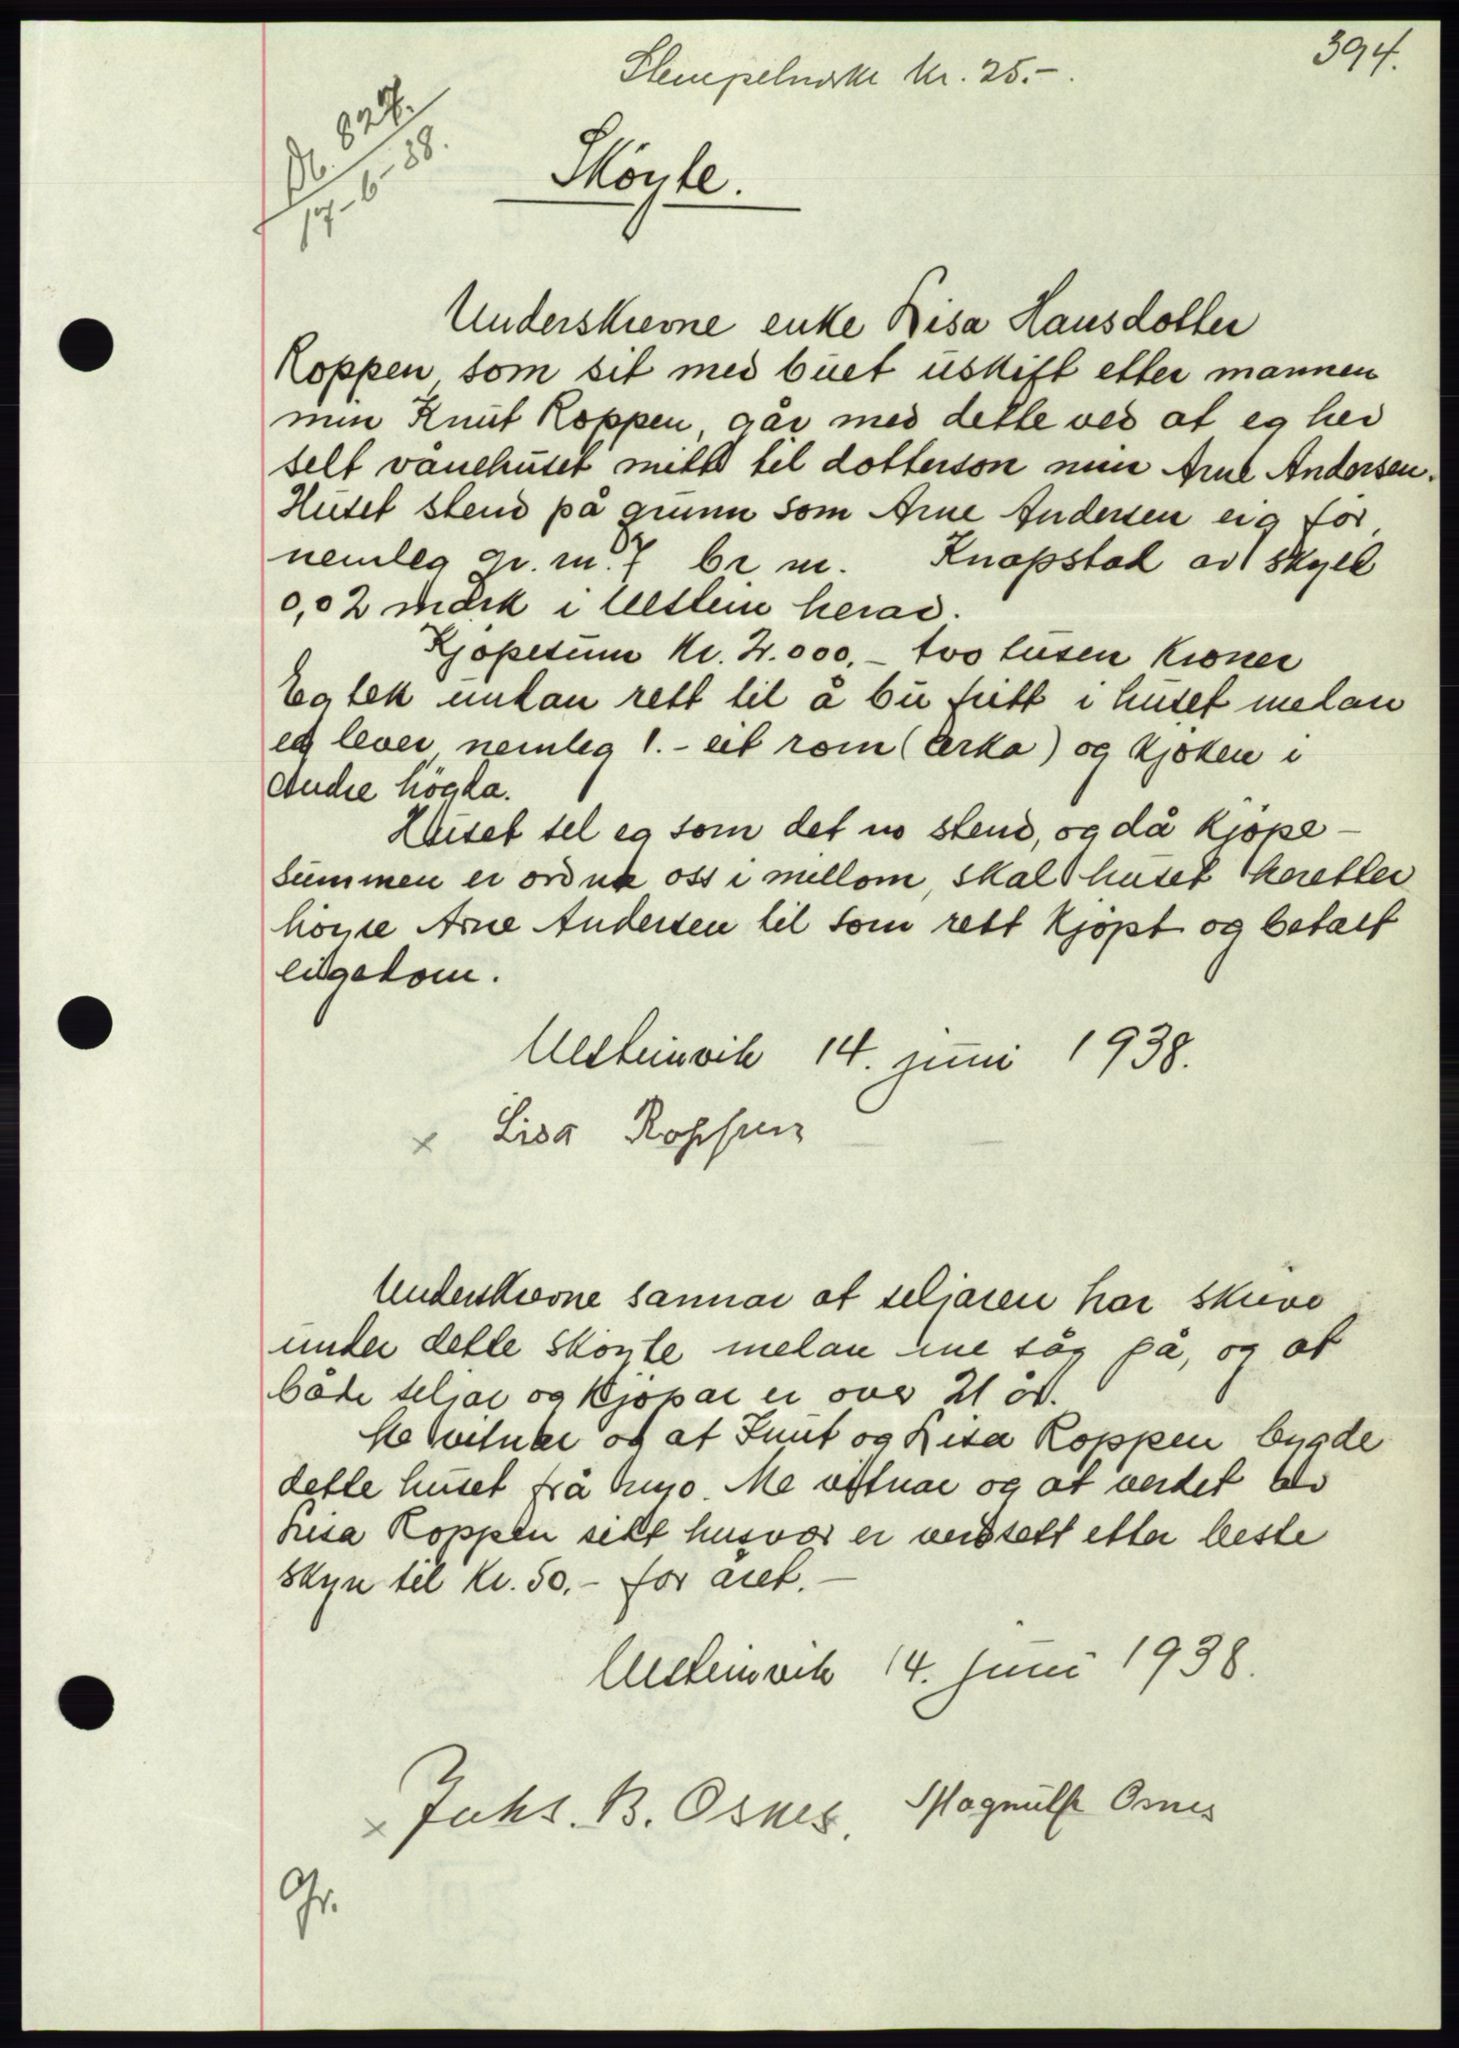 394.
Stempelmerke kr. 25.-.
Db. 827.
17-6-38.
Skøyte.
Underskrevne enke Lisa Hansdotter
Roppen, som sit med buet uskift etter mannen
min Knut Roppen, går med dette ved at eg hev
selt vånehuset mitt til dotterson min Arne Andersen.
Huset stend på grunn som Arne Andersen eig før,
nemleg gr. nr. 7 br nr. Knapstad av skyld
0,02 mark i Ulstein herad.
Kjøpesum kr. 2.000.- tvo tusen kroner
Eg tek untan rett til å bu fritt i huset melan
eg lever, nemleg 1.- eit rom (arka) og kjøken i
andre høgda.
Huset sel eg som det no stend, og då kjøpe-
summen er ordna oss i millom, skal huset heretter
høyre Arne Andersen til som rett kjøpt og betalt
eigedom.
Ulsteinvik 14. juni 1938.
x Lisa Roppen
Underskrevne sannar at seljaren har skrive
under dette skøyte melan me såg på, og at
både seljar og kjøpar er over 21 år.
Me vitnar og at Knut og Lisa Roppen bygde
dette huset frå nyo. Me vitnar og at verdet av
Lisa Roppen sitt husvær er verdsett etter beste
skyn til kr. 50.- for året.-
Ulsteinvik 14. juni 1938.
x Johs. B. Osnes. Magnulf Osnes
Gr.